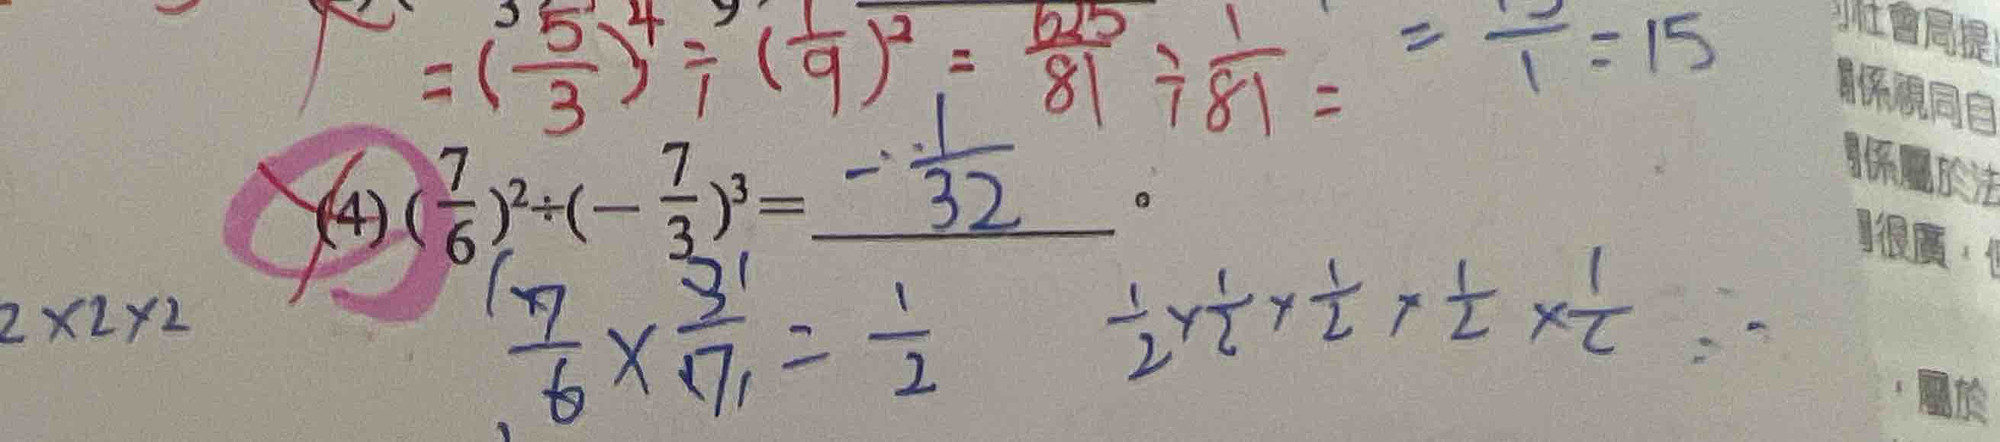 = (5/3)⁴ ÷ (1/9)² = 625/81 ÷ 1/81 =
= /1 = 15
(4) (7/6)²÷(−7/3)³= -1/32 。
7/6 × 3/7 = 1/2
1/2 × 1/2 × 1/2 × 1/2 × 1/2
2×2×2
社會局提
係視同自
係屬於法
很廣,
,屬於